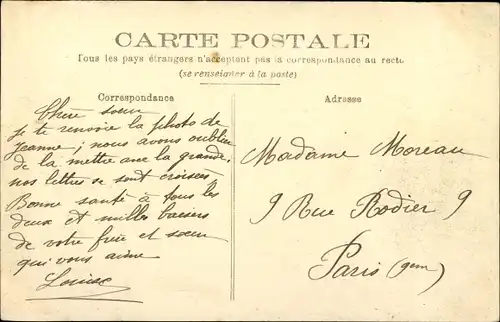 CARTE POSTALE
Tous les pays étrangers n'acceptent pas la correspondance au recto
(se renseigner à la poste)
Correspondance
Chère soeur
je te renvoie la photo de
Jeanne; nous avons oublier
de la mettre avec la grande;
nos lettres se sont croisées
Bonne santé à tous les
deux et milles baisers
de votre frère et soeur
qui vous aime
Louise
Adresse
Madame Moreau
9 Rue Rodier 9
Paris (9em)